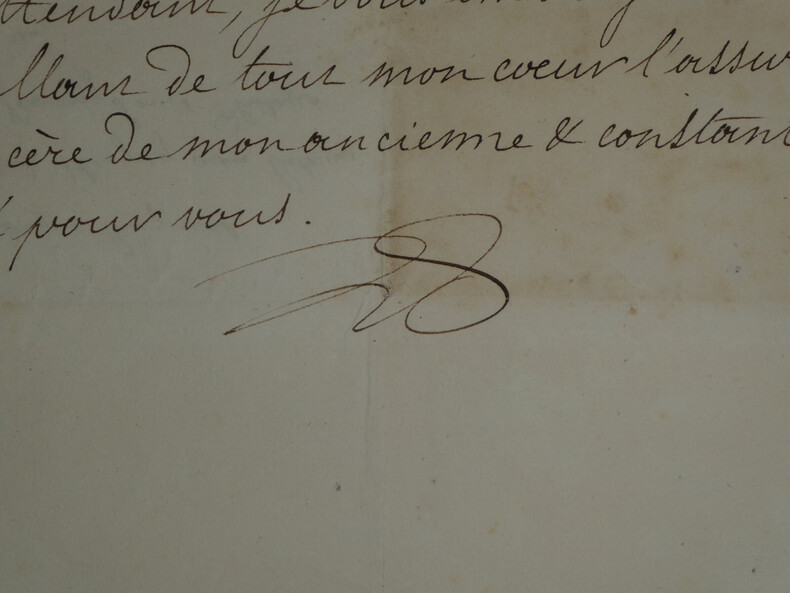 ttendant, je vous
llant de tout mon coeur l'assur
cère de mon ancienne & constan
pour vous.